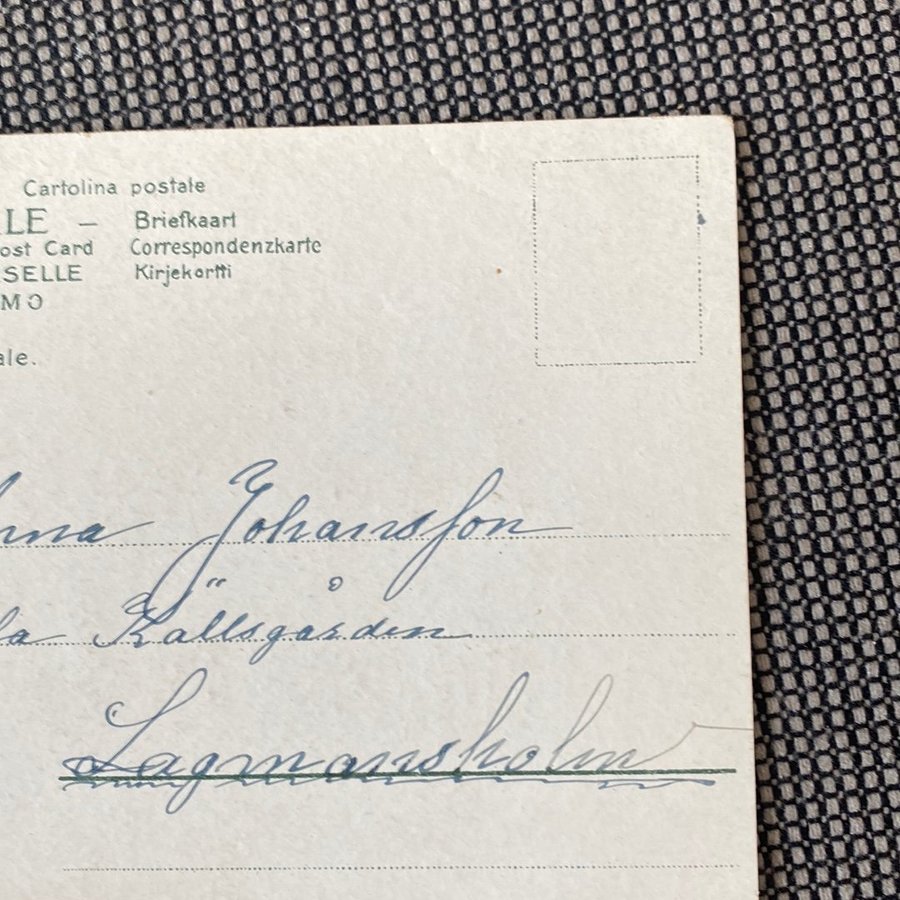 Cartolina postale
LE – Briefkaart
ost Card Correspondenzkarte
SELLE Kirjekortti
MO
ale.
nna Johansson
la Källsgården
Lagmansholm